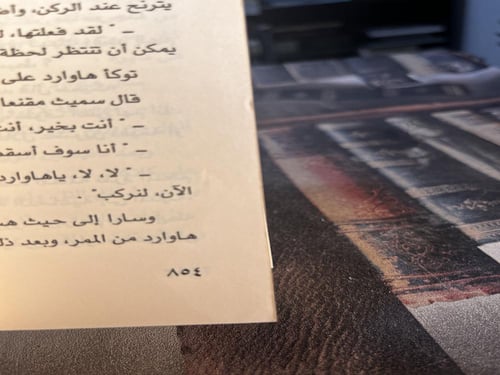 يترنح عند الركن، وأخ
– " لقد فعلتها، ل
يمكن أن تنتظر لحظة
توكأ هاوارد على
قال سميث مقنعا
– " أنت بخير، أنت
– " أنا سوف أسقط
– " لا، لا، ياهاوارد
الآن، لنركب" .
وسارا إلى حيث هب
هاوارد من الممر، وبعد ذل
٨٥٤